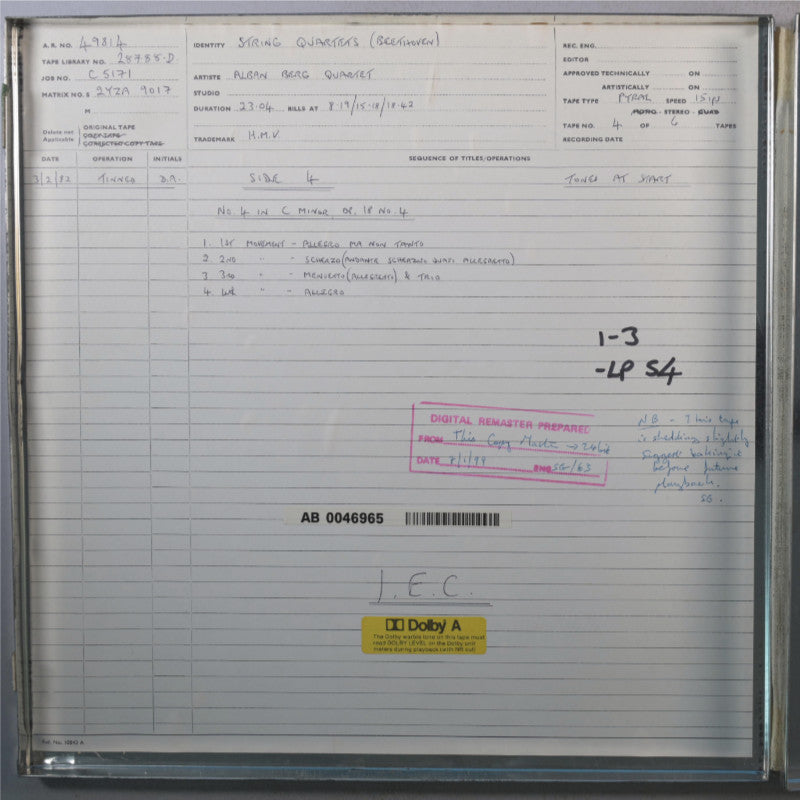 A.R. NO. 49814
TAPE LIBRARY NO. 28788.D.
JOB NO. C 5171
MATRIX NO.S 2YZA 9017
M
Delete not Applicable
ORIGINAL TAPE
COPY TAPE
CORRECTED COPY TAPE
IDENTITY STRING QUARTETS (BEETHOVEN)
ARTISTE ALBAN BERG QUARTET
STUDIO
DURATION 23.04 BILLS AT 8.19/15.18/18.42
TRADEMARK H.M.V.
REC. ENG.
EDITOR
APPROVED TECHNICALLY ON
ARTISTICALLY ON
TAPE TYPE PYRAL SPEED 15 IPS
MONO - STEREO - QUAD
TAPE NO. 4 OF 6 TAPES
RECORDING DATE
DATE OPERATION INITIALS SEQUENCE OF TITLES/OPERATIONS
3/2/82 TINNED D.A. SIDE 4 TONES AT START
NO. 4 IN C MINOR OP. 18 NO. 4
1. 1ST MOVEMENT - ALLEGRO MA NON TANTO
2. 2ND " - SCHERZO (ANDANTE SCHERZOSO QUASI ALLEGRETTO)
3. 3RD " - MENUETTO (ALLEGRETTO) & TRIO
4. 4th " - ALLEGRO
1-3
-LP S4
DIGITAL REMASTER PREPARED
FROM This Copy Master → 24bit
DATE 8/1/99 ENG SG/63
NB - This tape
is shedding slightly
suggest baking it
before future
playback.
SG.
AB 0046965
I.E.C.
Dolby A
The Dolby warble tone on this tape must
read DOLBY LEVEL on the Dolby unit
meters during playback (with NR out)
Ref. No. 10843 A